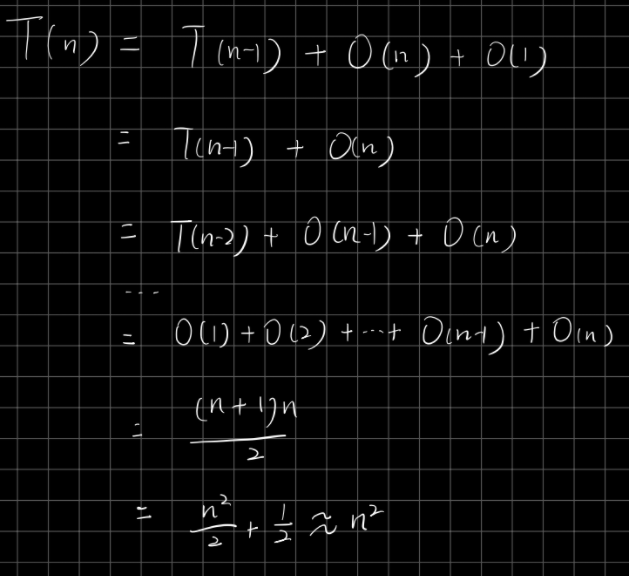 T(n) = T(n-1) + O(n) + O(1)
= T(n-1) + O(n)
= T(n-2) + O(n-1) + O(n)
...
= O(1) + O(2) + ... + O(n-1) + O(n)
= (n+1)n / 2
= n²/2 + 1/2 ≈ n²